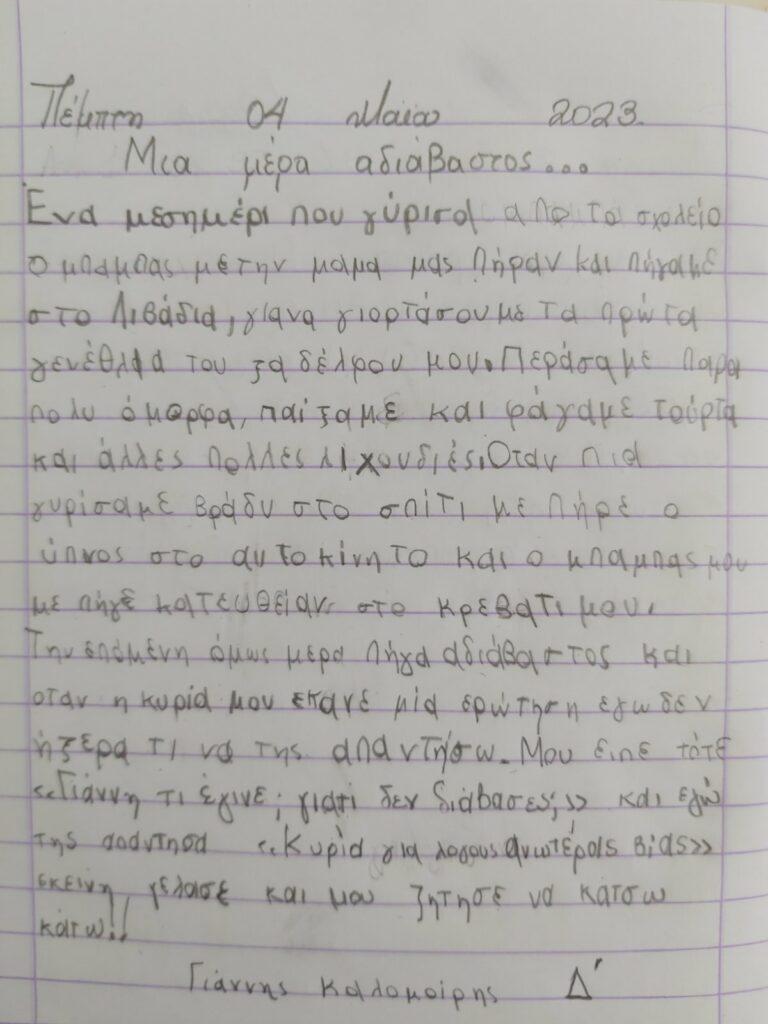 Πέμπτη 04 Μαίου 2023.
Μια μέρα αδιάβαστος...
Ένα μεσημέρι που γύρισα απο το σχολείο
ο μπαμπας με την μαμα μας πήραν και πήγαμε
στο Λιβάδια, γιανα γιορτάσουμε τα πρώτα
γενέθλια του ξαδέλφου μου. Περάσαμε παρα
πολυ όμορφα, παίξαμε και φάγαμε τούρτα
και άλλες πολλές λιχουδιές. Όταν πια
γυρίσαμε βράδυ στο σπίτι με πήρε ο
ύπνος στο αυτοκίνητο και ο μπαμπας μου
με πήγε κατευθείαν στο κρεβατι μου.
Την επόμενη όμως μέρα πήγα αδιάβαστος και
οταν η κυρία μου εκανε μία ερώτηση εγω δεν
ήξερα τι να της απαντήσω. Μου ειπε τότε
«Γιάννη τι έγινε; γιατί δεν διάβασες;» και εγώ
της απάντησα «Κυρία για λογους ανωτέρας βίας»
εκείνη γέλασε και μου ζήτησε να κάτσω
κάτω!!
Γιάννης Καλομοίρης Δ'